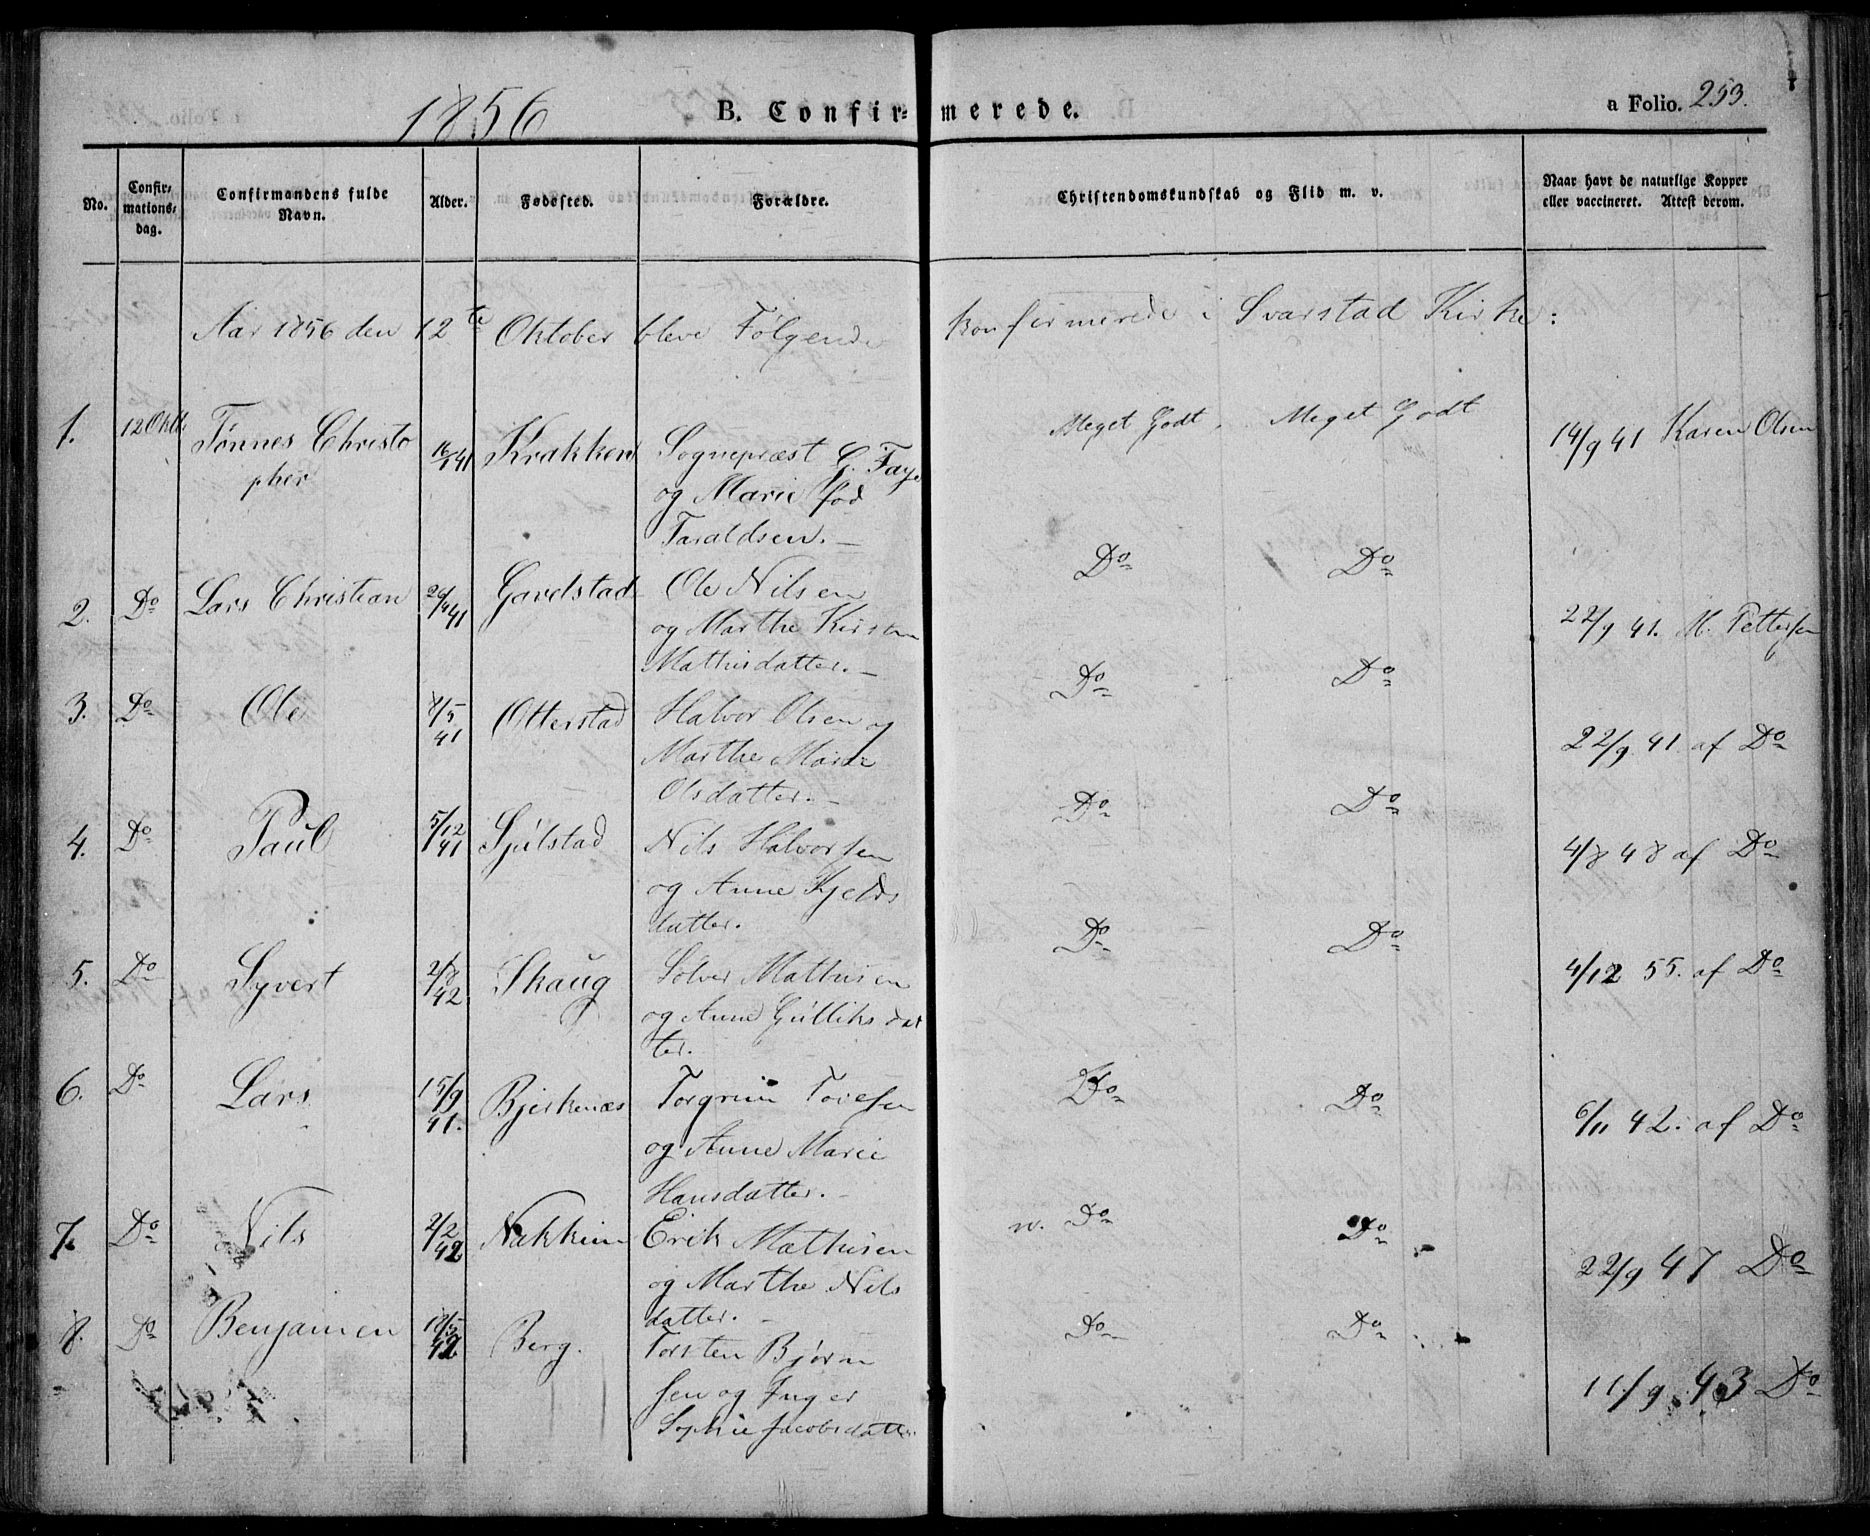 1856
B. Confirmerede.
a Folio. 253.
No.
Confirmationsdag.
Confirmandens fulde Navn.
Alder.
Fødested.
Forældre.
Christendomskundskab og Flid m. v.
Naar havt de naturlige Kopper eller vaccineret. Attest derom.
Aar 1856 den 12te Oktober bleve Følgende konfirmerede i Svarstad Kirke:
1. 12 Oktb. Tønnes Christo 41 Krakken Sognepræst G. Faye Meget Godt, Meget Godt 14/9 41 Karen Olsen
pher og Marie fød
Taraldsen.
2. Do Lars Christian 41 Gavelstad Ole Nilsen Do Do 22/9 41. M. Pettersen
og Marthe Kirsten
Mathisdatter.
3. Do Ole 8/5 41 Otterstad Halvor Olsen og Do Do 22/9 41 af Do
Marthe Marie
Olsdatter.
4. Do Paul 5/12 41 Sjulstad Nils Halvorsen Do Do 4/8 48 af Do
og Anne Kjelds
datter.
5. Do Syvert 2/8 42 Skaug Sølver Mathisen Do Do 4/12 55. af Do
og Anne Gulliksdat
ter.
6. Do Lars 15/9 41. Bjerkenæs Torgrim Toresen Do Do 6/11 42. af Do
og Anne Marie
Hansdatter.
7. Do Nils 2/2 42 Nakkim Erik Mathisen n. Do Do 22/9 47 Do
og Marthe Nils
datter.
8. Do Benjamen 18/5 42 Berg. Torsten Bjørn Do Do 11/9 43 Do
sen og Inger
Sophie Jacobsdatter